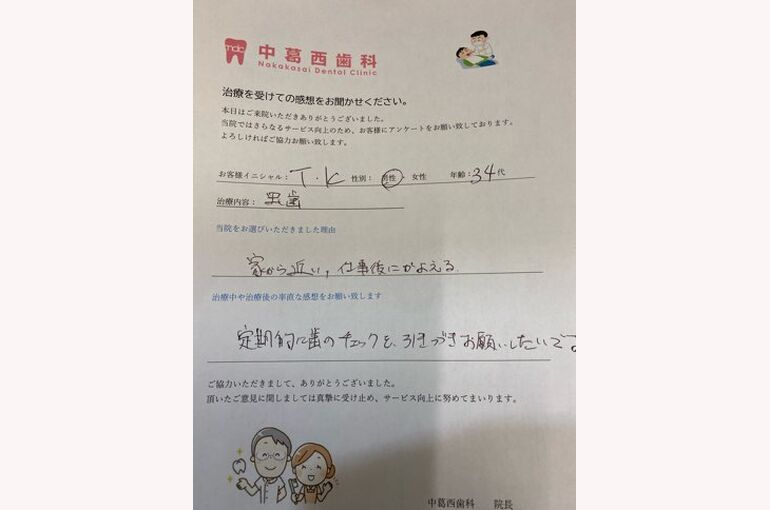 ndc 中葛西歯科
Nakakasai Dental Clinic
治療を受けての感想をお聞かせください。
本日はご来院いただきありがとうございました。
当院ではさらなるサービス向上のため、お客様にアンケートをお願い致しております。
よろしければご協力お願い致します。
お客様イニシャル：T.K 性別：男性・女性 年齢：34代
治療内容：虫歯
当院をお選びいただきました理由
家から近い，仕事後にかよえる．
治療中や治療後の率直な感想をお願い致します
定期的に歯のチェックを、引きつづきお願いしたいです
ご協力いただきまして、ありがとうございました。
頂いたご意見に関しましては真摯に受け止め、サービス向上に努めてまいります。
中葛西歯科 院長